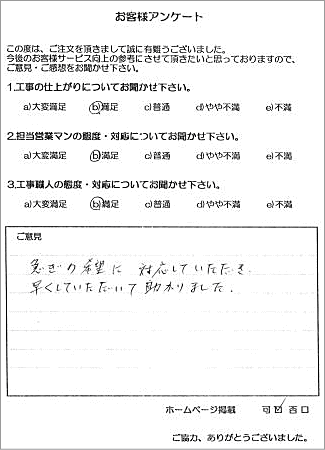 お客様アンケート
この度は、ご注文を頂きまして誠に有難うございました。
今後のお客様サービス向上の参考にさせて頂きたいと思っておりますので、
ご意見・ご感想をお聞かせ下さい。
1.工事の仕上がりについてお聞かせ下さい。
a)大変満足 b)満足 c)普通 d)やや不満 e)不満
2.担当営業マンの態度・対応についてお聞かせ下さい。
a)大変満足 b)満足 c)普通 d)やや不満 e)不満
3.工事職人の態度・対応についてお聞かせ下さい。
a)大変満足 b)満足 c)普通 d)やや不満 e)不満
ご意見
急ぎの希望に 対応していただき、
早くしていただいて助かりました。
ホームページ掲載 可☑ 否□
ご協力、ありがとうございました。